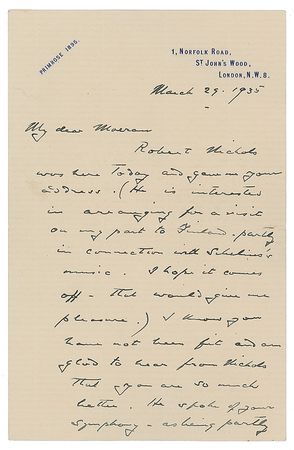 PRIMROSE 1895.
1, NORFOLK ROAD,
ST JOHN'S WOOD,
LONDON, N.W.8.
March 29. 1935
My dear Moeran
Robert Nichols
was here today and gave me your
address. (He is interested
in arranging for a visit
on my part to Finland - partly
in connection with Sibelius's
music. I hope it comes
off - that would give me
pleasure.) I know you
have not been fit and am
glad to hear from Nichols
that you are so much
better. He spoke of your
symphony - as being partly